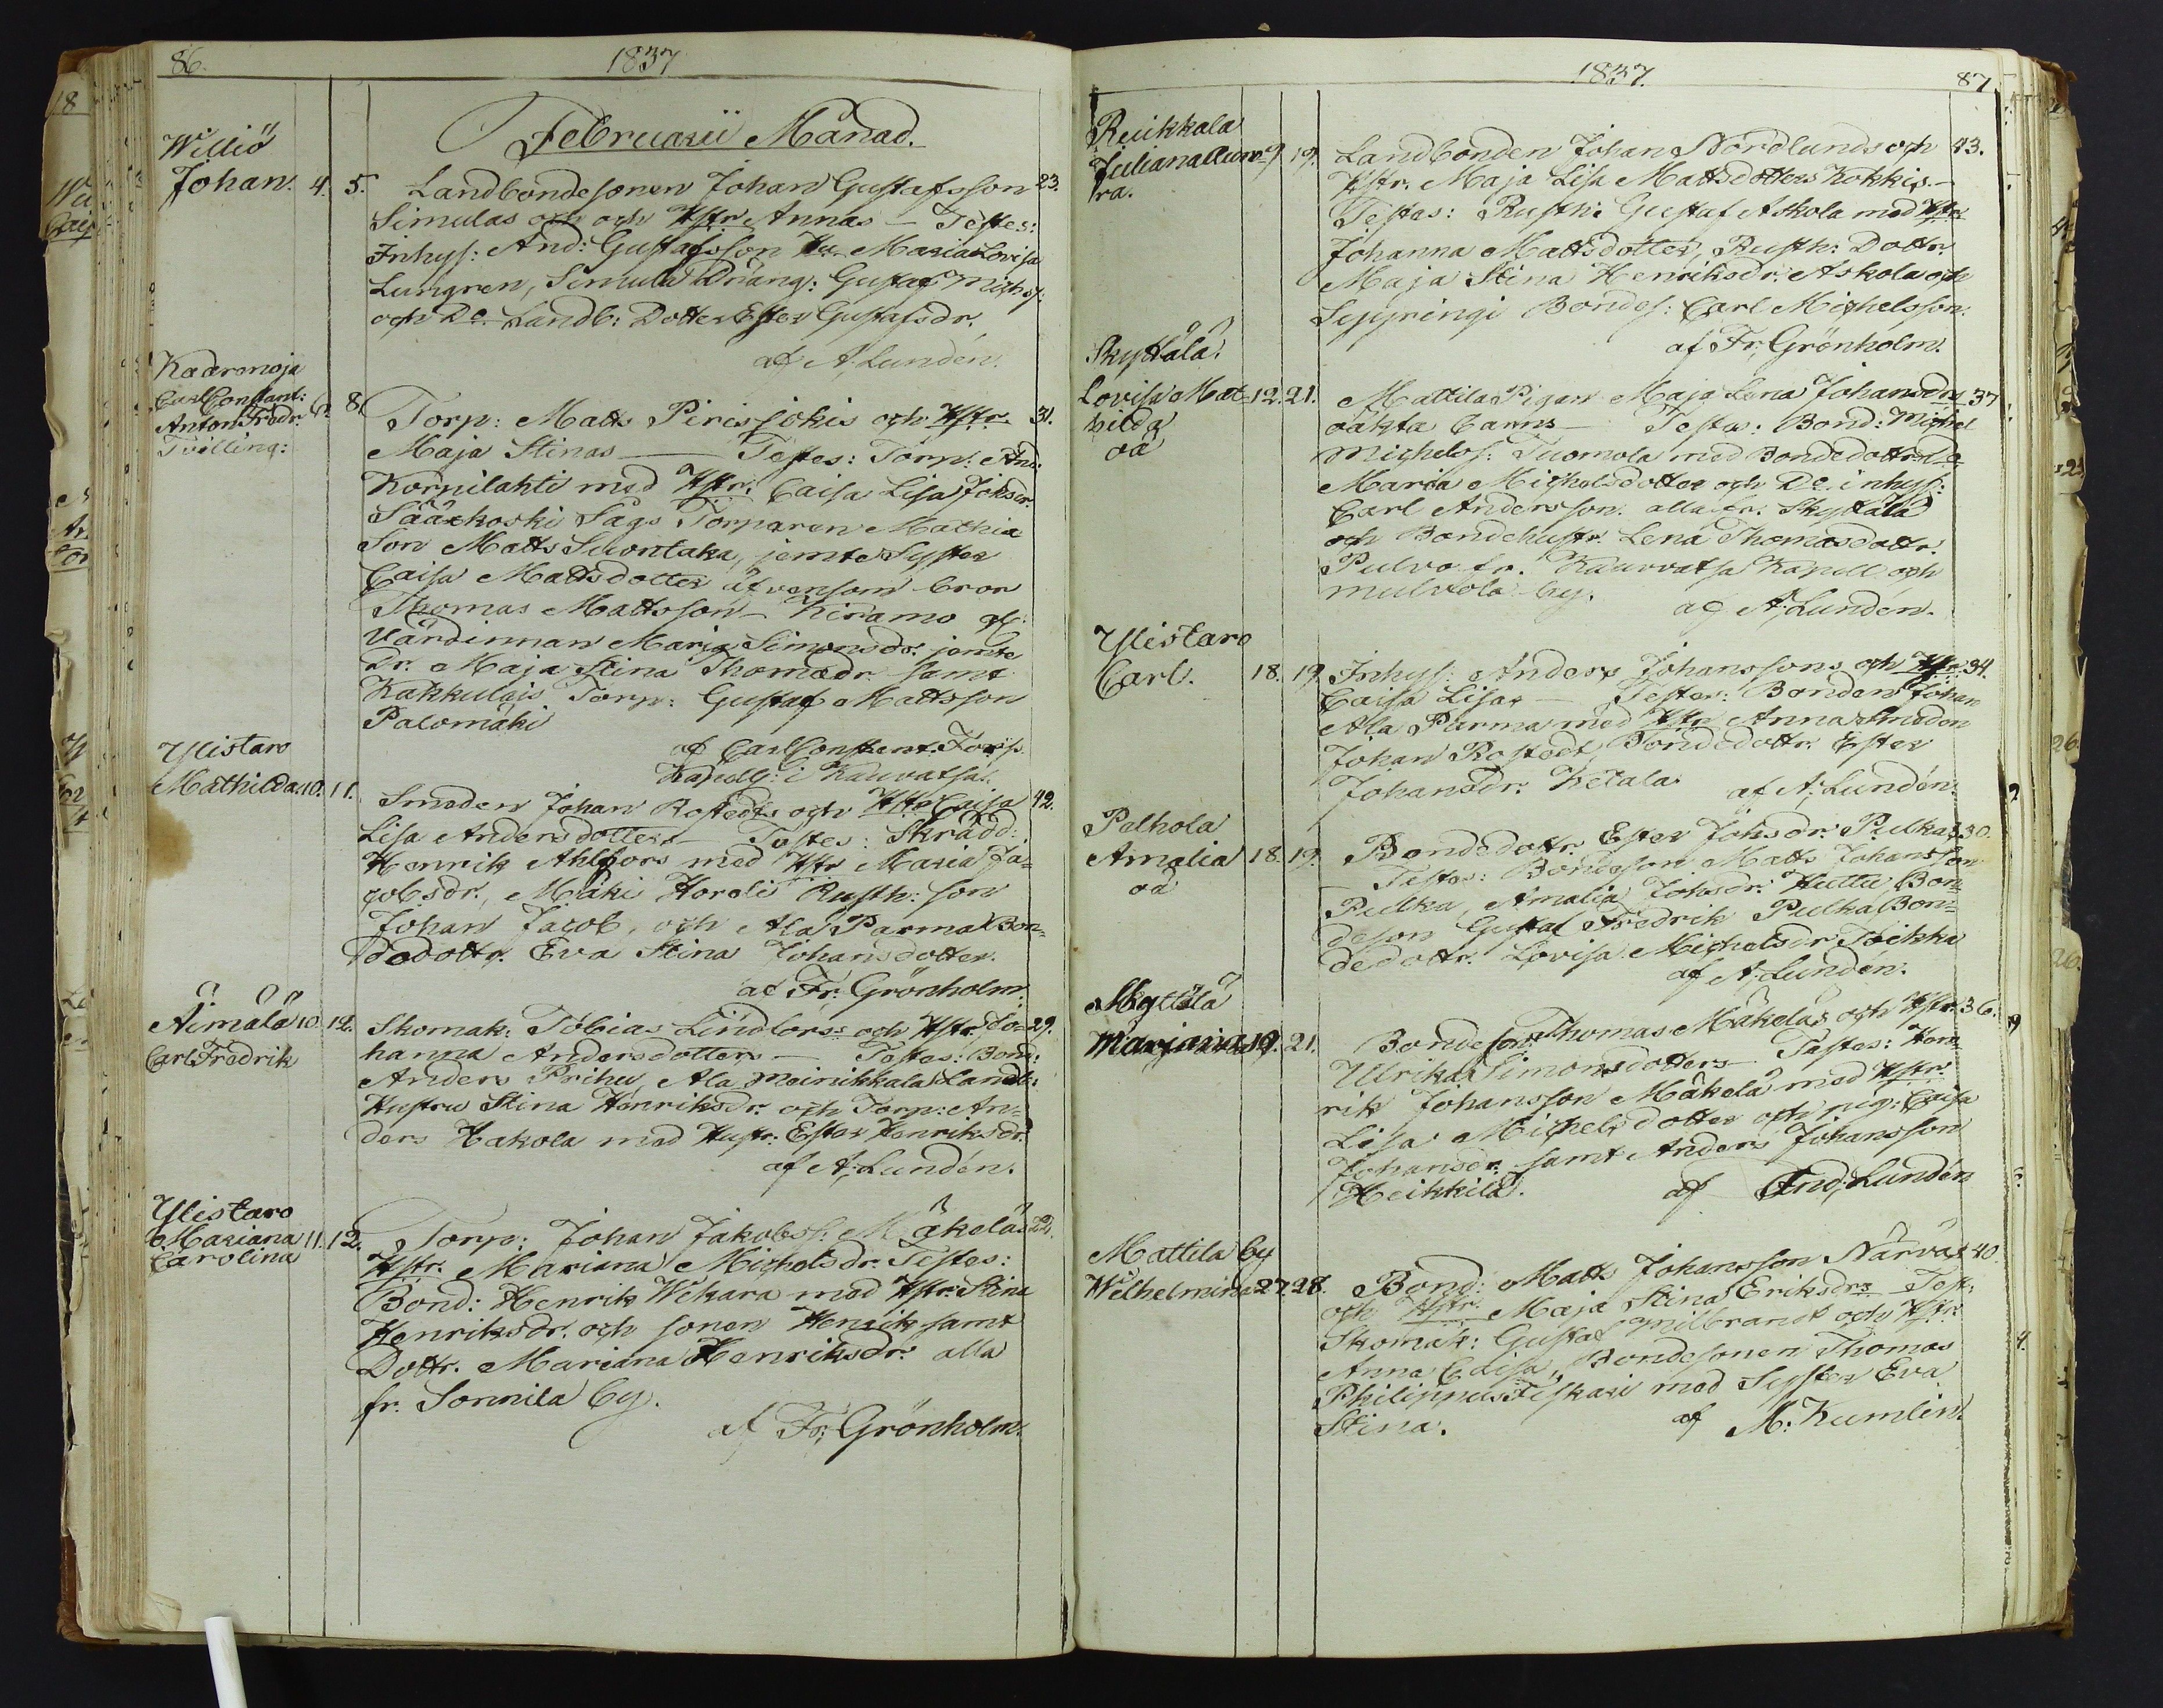 86.
1837
Februarii Månad.
Williö
Johan. 4. 5. Landbondesonen Johan Gustafsson 23.
Simulas och Hstr Annas — Testes:
Inhys: And: Gustafsson Hu Maria Lovisa
Lungren, Simula Dräng: Gustaf Michelss:
och Do. Landb: Dotter Ester Gustafsdr.
af A, Lundén.
Kaaranoja
Carl Constant:
Anton Fredr. 6. 8. Torp: Matts Pirisjokis och Hstr. 31.
Tvilling:
Maja Stinas — Testes: Torp: And:
Korpilahti med Hstr. Caisa Lisa Johsdr.
Sääxkoski Sågs Torparen Mathia
son Matts Suontaka, jemte Syster
Caisa Mattsdotter äfvensom bror
Thomas Mattsson — Kiramo
Värdinnan Maria Simonsdr. jemte
Dr. Maja Stina Thomadr. samt
Kakkulais Torp: Gustaf Mattsson
Palomäki
af Carl Constant. Forss.
Kapell: i Kauvatsa.
Ylistaro
Mathilda. 10. 11. Smeden Johan Rostedts och Hstr Caisa 42.
Lisa Andersdotters — Testes: Skrädd:
Henrik Ahlfors med Hstr Maria Ja-
cobsdr., Mäki Horeli Rusth: son
Johan Jacob, och Ala Parma Bon-
dedottr. Eva Stina Johansdotter.
af Fr: Grönholm.
Äimälä 10. 12. Skomak: Tobias Lindfors: och Hstr. Jo- 29.
Carl Fredrik
hanna Andersdotters — Testes: Bond:
Anders Prihu, Ala Meinikkala Landb:
Hustru Stina Henriksdr. och Torp: An-
ders Hakola med Hustr: Ester Henriksdr.
af A, Lundén.
Ylistaro
Mariana 11. 12. Torp: Johan Jakobss: Mäkeläs 22.
Carolina
Hstr. Mariana Michelsdr. Testes:
Bond: Henrik Wekara med Hstr. Stina
Henriksdr. och sonen Henrik samt
Dottr. Mariana Henriksdr. alla
fr. Sonnila by.
af Fr, Grönholm.
1837.
87
Reikkala
Juliana Auro- 9 19. Landbonden Johan Nordlunds och 43.
ra.
Hstr. Maja Lisa Mattsdotters Kokkis. —
Testas: Rusth: Gustaf Askola med Hstr
Johanna Mattsdotter, Rusth: Dottr.
Maja Stina Henriksdr. Askola och
Seppringi Bondes: Carl Michelsson.
af Fr, Grönholm.
Skyttälä.
Lovisa Mat- 12. 21. Mattila Pigan Maja Lena Johansdrs 37
hilda
oä
oäkta barns — Testes: Bond: Michel
Michelss: Tuomola med Bondedottr. Do
Maria Michelsdotter och Do. inhys:
Carl Andersson. alla fr. Skyttälä
och Bondehustr. Lena Thomasdottr.
Pulvo fr. Kauvatsa Kapell och
Mulvola by.
af A, Lundén.
Ylistaro
Carl. 18. 19 Inhys: Anders Johanssons och Hstr 34.
Caisa Lisas — Testes: Bonden Johan
Ala Parma med Hstr Anna Smeden
Johan Rostedt, Bondedottr. Ester
Johansdr. Ketala.
af A, Lundén.
Palhola
Amalia 18. 19. Bondedottr. Ester Johsdr. Pulkas 30.
oä
Testes: Bondeson Matts Johansson
Pulka, Amalia Johsdr. Huttu Bon-
deson Gustaf Fredrik Pulka Bon-
dedottr. Lovisa Michelsdr Toikka
af A. Lundén.
Myttälä
Mariana 19. 21. Bondeson Thomas Mäkeläs och Hstr. 36.
Ulrika Simonsdotters — Testes: Hen-
rik Johansson Mäkelä med Hstr.
Lisa Michelsdotter och pig: Caisa
Johansdr. samt Anders Johansson
Heikkilä.
af And, Lundén
Mattila by
Wilhelmina 27. 28. Bond: Matts Johansson Närväs 40.
och Hstr. Maja Stina Eriksdrs Test:
Skomak: Gustaf Milbrandt och Hstr.
Anna Lisa, Bondesonen Thomas
Philippus Tiskari med Syster Eva
Stina.
af M. Kumlin.